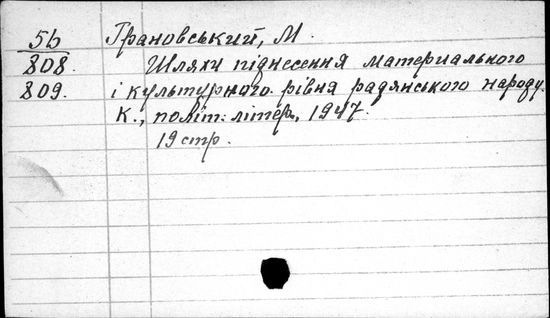 5b Грановський, М.
808. Шляхи піднесення материального
809. і культурного рівня радянського народу.
К., політ. літер., 1947.
19 стр.